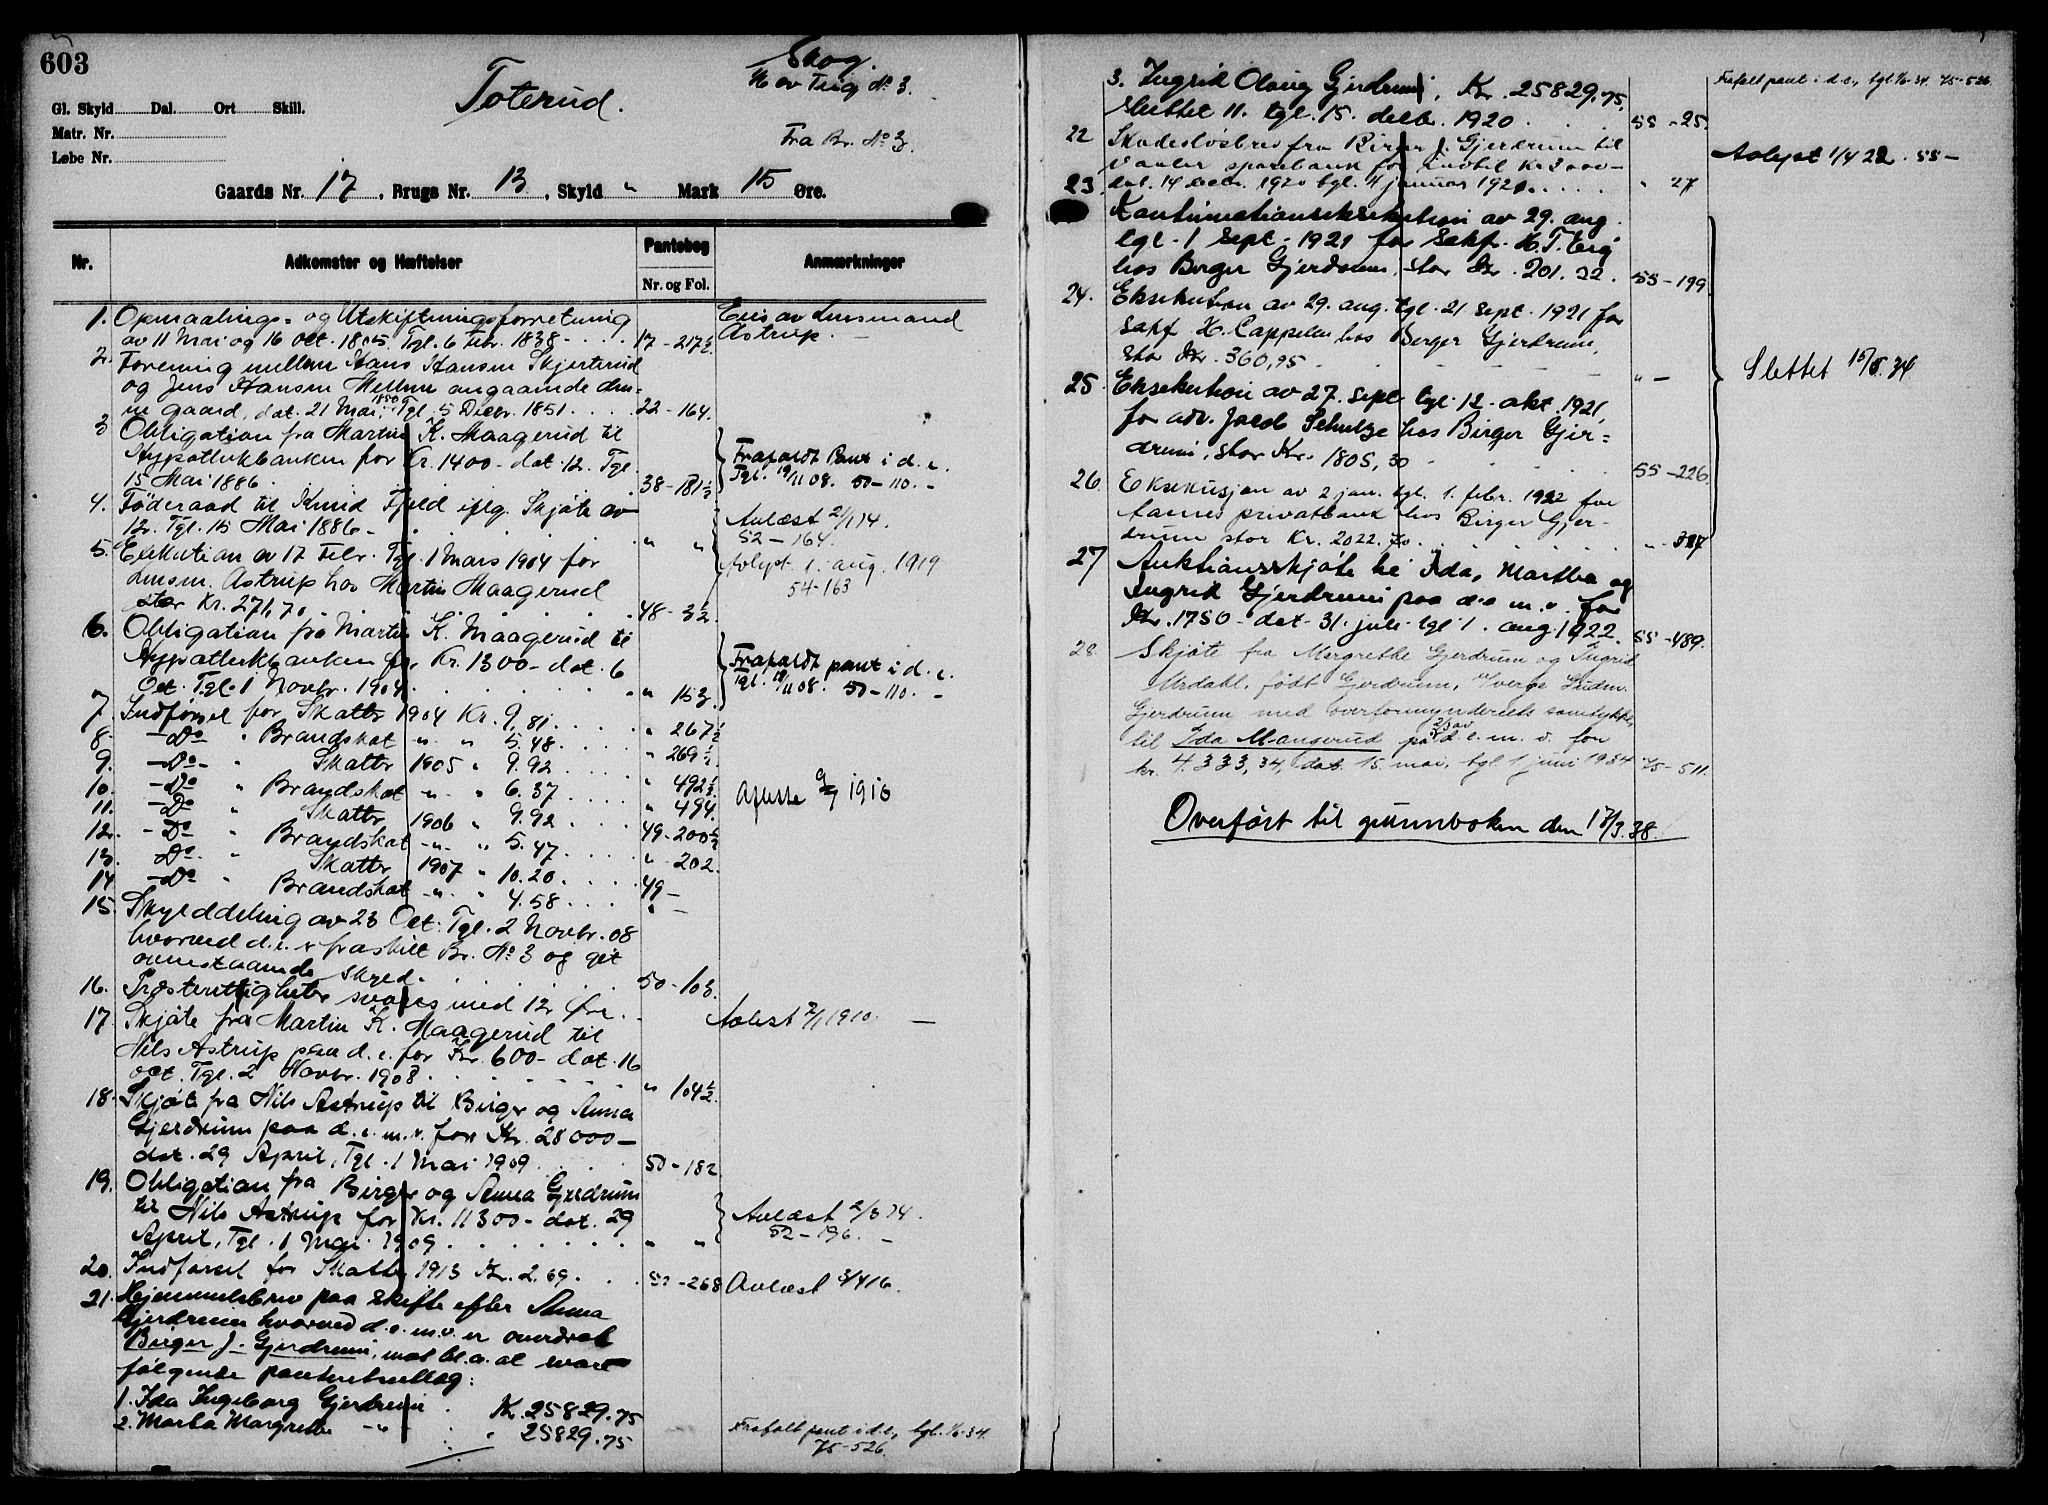 603
Toterud.
Skog.
av Teig No 3.
Fra Br. No 3.
Gl. Skyld Dal. Ort Skill.
Matr. Nr.
Løbe Nr.
Gaards Nr. 17, Brugs Nr. 13, Skyld " Mark 15 Øre.
Nr. Adkomster og Hæftelser Pantebog Anmærkninger
Nr. og Fol.
1. Opmaalings- og Utskiftningsforretning Eies av Lensmand
av 11 Mai og 16 Oct. 1805. Tgl. 6 Febr. 1838 17-217½ Astrup.
2. Forening mellem Hans Hansen Skjerterud
og Jens Hansen Mellem angaaende den-
ne gaard, dat. 21 Mai 1850, Tgl. 5 Decbr. 1851. 22-164.
3 Obligation fra Martin K. Maagerud til
Hypothekbanken for Kr. 1400- dat. 12. Tgl. Frafaldt Pant i d. e.
15 Mai 1886. 38-181½ Tgl. 19/11 08. 50-110.-
4. Föderaad til Knud Fjeld iflg. Skjöte av Avlæst 2/1 14.
12. Tgl. 15 Mai 1886- " " 52-164.
5. Exekution av 17 Febr. Tgl. 1 Mars 1904 for Avlyst 1. aug. 1919
lensm. Astrup hos Martin Maagerud 54-163
stor Kr. 271,70 48-32
6. Obligation fra Martin K. Maagerud til
Hypothekbanken for Kr. 1300- dat. 6 Frafaldt pant i d. e.
Oct. Tgl. 1 Novbr. 1904. " 153. Tgl. 19/11 08. 50-110.-
7. Indförsel for Skatter 1904 Kr. 9,81. " 267½
8. -Do- " Brandskat -"- " 5.48. " 269½
9. -Do- " Skatter 1905 " 9.92 " 492½
10. -Do " Brandskat -"- " 6.37 " 494.
11. -Do " Skatter 1906 " 9.92 49-200½
12. -Do- " Brandskat -"- " 5.47. " 202.
13. -Do- " Skatter 1907 " 10.20. 49-
14. -Do " Brandskat -"- " 4.58 " -
15. Skylddeling av 23 Oct. Tgl. 2 Novbr. 08
hvorved d. e. er fraskilt Br. No 3 og git
ovenstaaende Skyld. 50-103.
16. Præsterettigheter svares med 12 Øre.
17. Skjöte fra Martin K. Maagerud til Avlæst 2/1 1910.-
Nils Astrup paa d. e. for Kr. 600- dat. 16
oct. Tgl. 2 Novbr. 1908. " 104½
18. Skjöte fra Nils Astrup til Birger og Anna
Gjerdrum paa d. e. m. v. for Kr. 28000-
dat. 29 April, Tgl. 1 Mai 1909. 50-182
19. Obligation fra Birger og Anna Gjerdrum
til Nils Astrup for Kr. 11300- dat. 29 Avlæst 2/3 14.
April, Tgl. 1 Mai 1909. " " 52-196.-
20. Indförsel for Skatter 1913 Kr. 2,69. 52-268 Avlæst 3/4 16.
21. Hjemmelsbrev paa skifte efter Anna
Gjerdrum hvorved d. e. m. v. er overdrat
Birger J. Gjerdrum, mot bl. a. at svare
følgende panteutlæg:
1. Ida Ingeborg Gjerdrum Kr. 25829.75
2. Marta Margrethe -"- " 25829.75 Frafalt pant i d.e., tgl. 1/6-34.
75-526
3. Ingrid Olaug Gjerdrum, Kr. 25829.75, Frafalt pant i d.e., tgl 1/6-34. 75-526.
sluttet 11. tgl. 15. decbr. 1920. 55-25.
22 Skadesløsbrev fra Birger J. Gjerdrum til
Vaaler sparebank for indtil Kr 3000- Avlyst 1/4 22. 55-
23. dat. 14 decbr. 1920 tgl. 4 januar 1921. " 27
Kontinuationseksekution av 29. aug.
tgl. 1 sept. 1921 for Sakf. H. T. Eng
hos Birger Gjerdrum, stor Kr. 201.32. 55-199.
24. Eksekution av 29. aug. tgl. 21 sept. 1921 for
sakf. H. Cappelen hos Birger Gjerdrum,
stor Kr. 360,95 " - Slettet 15/5.34
25. Eksekution av 27. sept. tgl. 12. okt. 1921
for adv. Jacob Schulze hos Birger Gjer-
drum, stor Kr. 1805,30 55-226.
26. Eksekusjon av 2 jan. tgl. 1. febr. 1922 for
privatbank hos Birger Gjer-
drum stor Kr. 2022.70. " 317
27 Auktionsskjöte til Ida, Martha og
Ingrid Gjerdrum paa d.e. m.v. for
Kr. 1750- dat. 31. juli tgl 1. aug 1922. 55-489.
28. Skjöte fra Margrethe Gjerdrum og Ingrid
Urdahl, født Gjerdrum, v/verge Gudm.
Gjerdrum med overformynderiets samtykke,
til Ida Mangerud på 2/3 av d.e. m.v. for
kr. 4.333,34, dat. 15. mai, tgl 1 juni 1934 75-511.
Overført til grunnboken den 17/3.38.